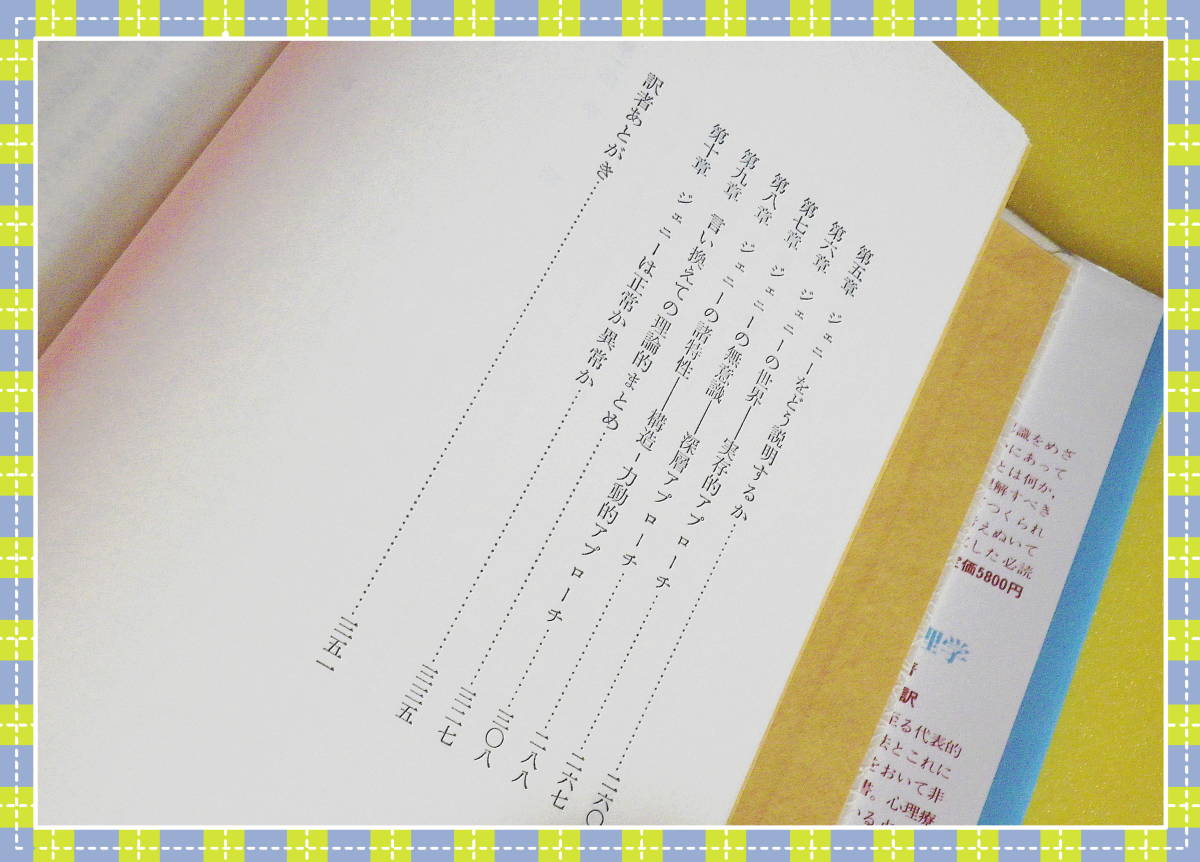 第五章 ジェニーをどう説明するか……………二六〇
第六章 ジェニーの世界――実存的アプローチ……………二六七
第七章 ジェニーの無意識――深層アプローチ……………二八八
第八章 ジェニーの諸特性――構造‐力動的アプローチ……………三〇八
第九章 言い換えての理論的まとめ……………三二七
第十章 ジェニーは正常か異常か……………三三五
訳者あとがき……………三五一
識をめざ
にあって
とは何か、
解すべき
つくられ
えぬいて
した必読
価5800円
理学
訳
る代表的
とこれに
おいて非
書。心理療